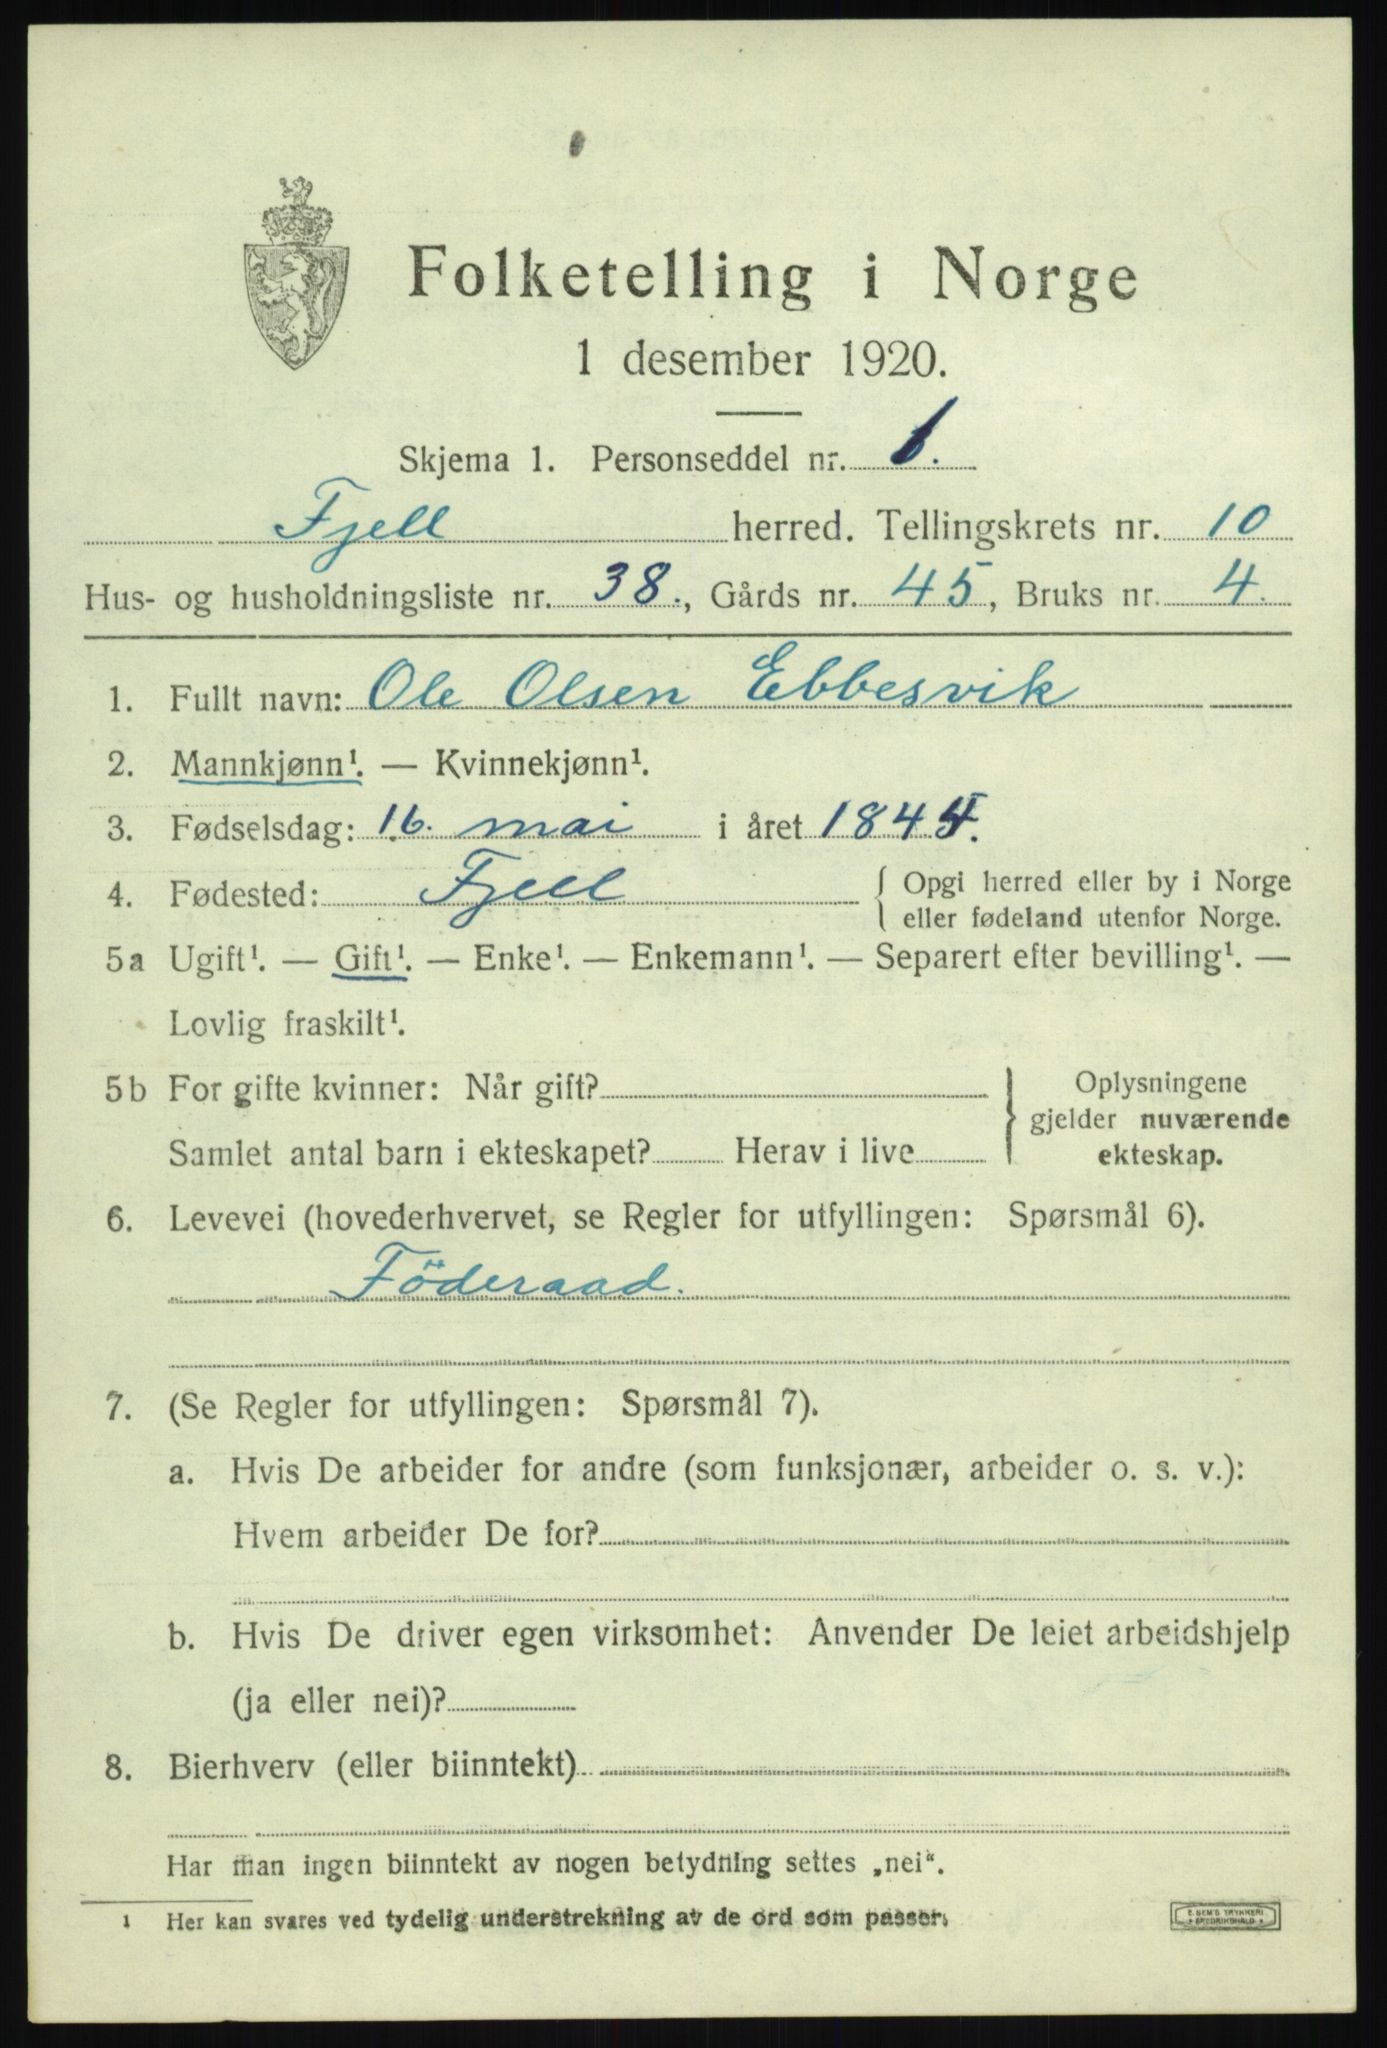 Folketelling i Norge
1 desember 1920.
Skjema 1. Personseddel nr. 1.
Fjell herred. Tellingskrets nr. 10
Hus- og husholdningsliste nr. 38., Gårds nr. 45, Bruks nr. 4.
1. Fullt navn: Ole Olsen Ebbesvik
2. Mannkjønn¹. — Kvinnekjønn¹.
3. Fødselsdag: 16. mai i året
4. Fødested: Fjell { Opgi herred eller by i Norge
eller fødeland utenfor Norge.
5a Ugift¹. — Gift¹. — Enke¹. — Enkemann¹. — Separert efter bevilling¹. —
Lovlig fraskilt¹.
5b For gifte kvinner: Når gift? } Oplysningene
gjelder nuværende
Samlet antal barn i ekteskapet? Herav i live ekteskap.
6. Levevei (hovederhvervet, se Regler for utfyllingen: Spørsmål 6).
Föderaad.
7. (Se Regler for utfyllingen: Spørsmål 7).
a. Hvis De arbeider for andre (som funksjonær, arbeider o. s. v.):
Hvem arbeider De for?
b. Hvis De driver egen virksomhet: Anvender De leiet arbeidshjelp
(ja eller nei)?
8. Bierhverv (eller biinntekt)
Har man ingen biinntekt av nogen betydning settes „nei“.
1 Her kan svares ved tydelig understrekning av de ord som passer.
E. SEM'S TRYKKERI
• FREDRIKSHALD •